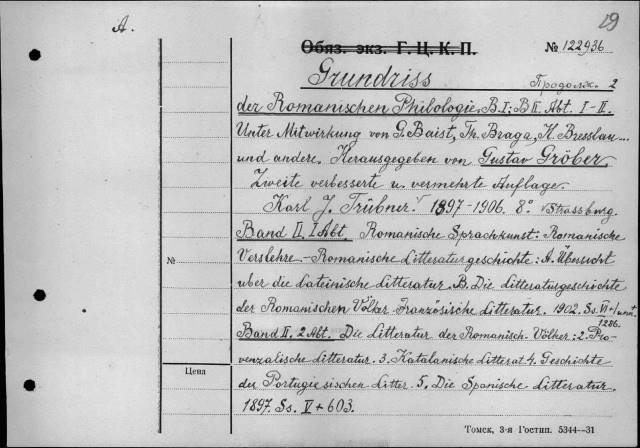 19
А.
Обяз. экз. Г. Ц. К. П.
№ 122936
Grundriss
Продолж. 2
der Romanischen Philologie. B. I; B II. Abt. I-II.
Unter Mitwirkung von G. Baist, Th. Braga, H. Bresslau...
und andere. Herausgegeben von Gustav Gröber.
Zweite verbesserte u. vermehrte Auflage.
Karl J. Trübner. 1897-1906. 8° Strassburg.
Band II. I Abt. Romanische Sprachkunst: Romanische
№ Verslehre.-Romanische Litteraturgeschichte: A. Übersicht
uber die Lateinische Litteratur. B. Die Litteraturgeschichte
der Romanischen Völker. Französische Litteratur. 1902. Ss. VI+1
1286.
Band II. 2 Abt. Die Litteratur der Romanisch. Völker: 2. Pro-
venzalische Litteratur. 3. Katalanische Litterat. 4. Geschichte
Цена
der Portugiesischen Litter. 5. Die Spanische Litteratur.
1897. Ss. V + 603.
Томск, 3-я Гостип. 5344—31